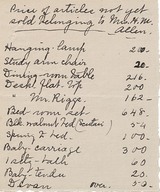 Price of articles not yet
sold belonging to Mr. H. M.
Allen.
Hanging lamp 2.00
Study arm chair .20
Dining-room table 2.16
Desk, flat-top 2.00
Wm Riggs. 1.62
Bed room set 6.48
Blk walnut Bed 54
Spring & Bed 1.00
Baby-carriage 3.00
1 table 60
Baby tender 20
Divan over. 5.